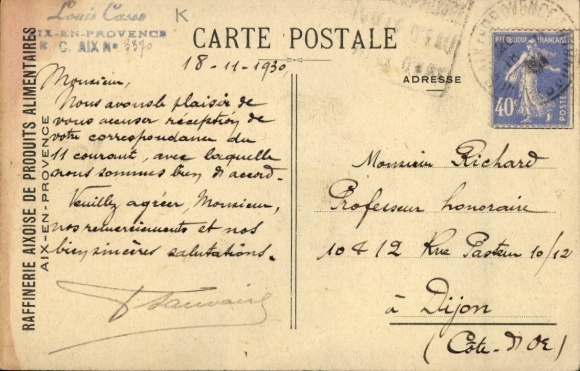 Louis Casse
AIX-EN-PROVENCE
R. C. AIX No 3390
K
CARTE POSTALE
ADRESSE
RAFFINERIE AIXOISE DE PRODUITS ALIMENTAIRES
AIX-EN-PROVENCE
18-11-1930
Monsieur,
Nous avons le plaisir de
vous accuser réception de
votre correspondance du
11 courant, avec laquelle
nous sommes bien d'accord.
Veuillez agréer Monsieur,
nos remerciements et nos
bien sincères salutations.
REPUBLIQUE FRANÇAISE
40c
POSTES
Monsieur Richard
Professeur honoraire
10 & 12 Rue Pasteur 10/12
à Dijon
(Côte-d'Or)